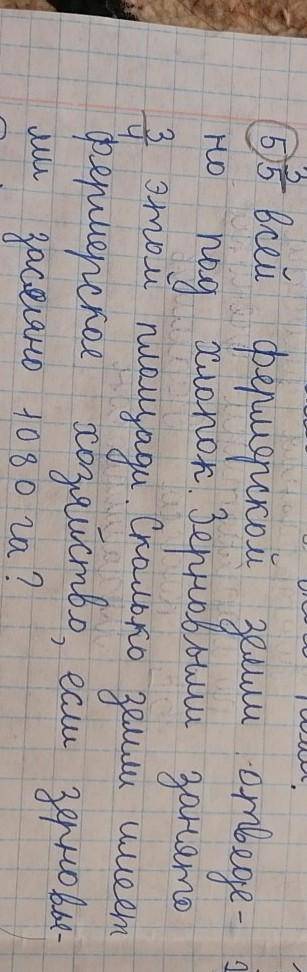 5) 3/5 всей фермерской земли отведе-
но под хлопок. Зерновыми занято
3/4 этой площади. Сколько земли имеет
фермерское хозяйство, если зерновы-
ми засеяно 1080 га?